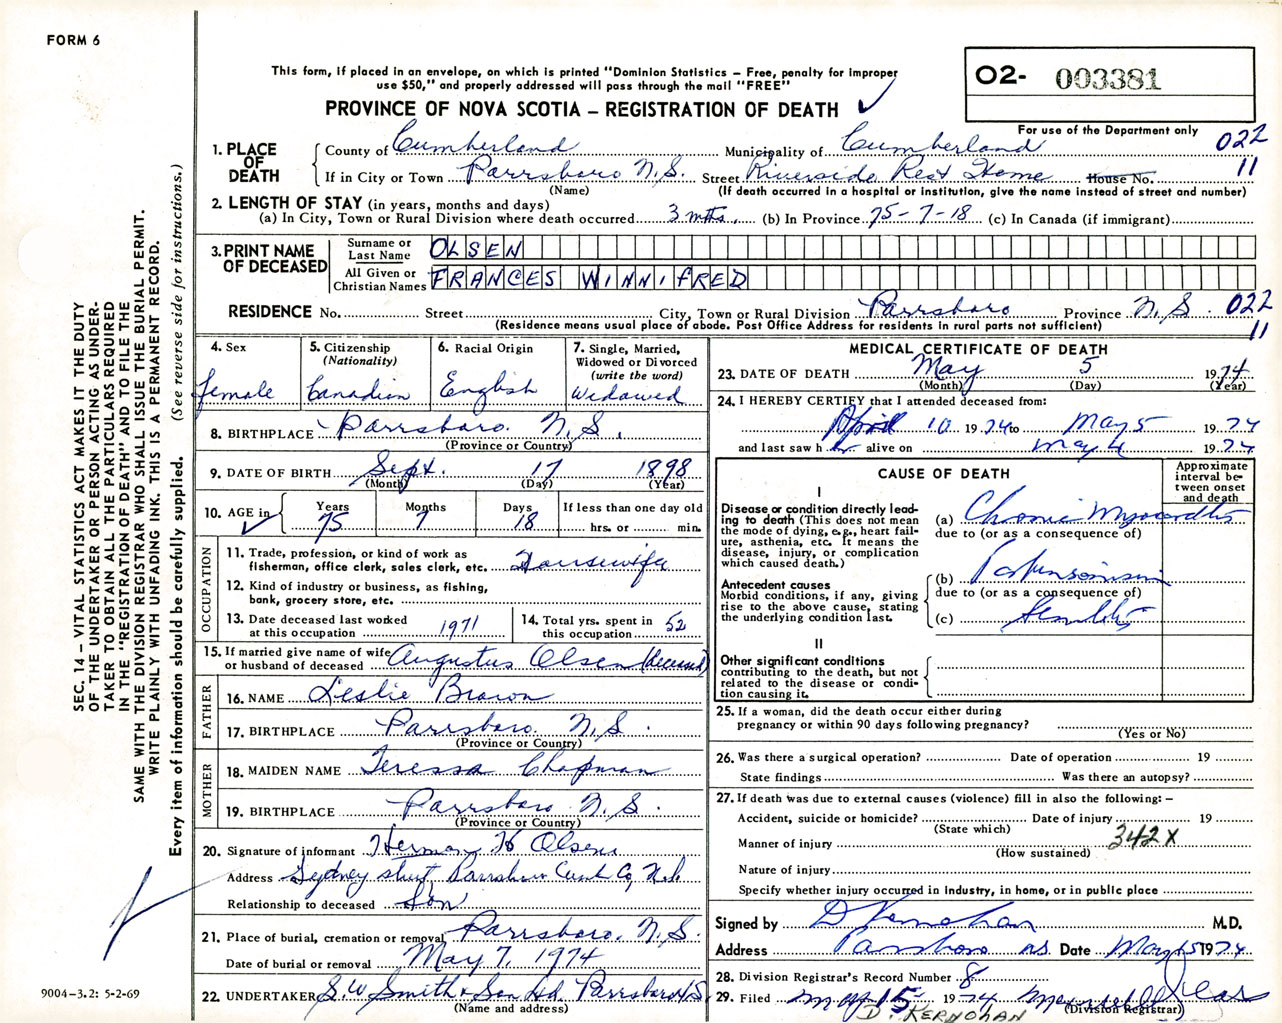 FORM 6
This form, if placed in an envelope, on which is printed "Dominion Statistics – Free, penalty for improper
use $50," and properly addressed will pass through the mail "FREE"
PROVINCE OF NOVA SCOTIA – REGISTRATION OF DEATH
02- 003381
For use of the Department only
022
11
1. PLACE OF DEATH
County of Cumberland Municipality of Cumberland
If in City or Town Parrsboro N.S. Street Riverside Rest Home House No.
(Name) (If death occurred in a hospital or institution, give the name instead of street and number)
2. LENGTH OF STAY (in years, months and days)
(a) In City, Town or Rural Division where death occurred 3 mths. (b) In Province 75-7-18 (c) In Canada (if immigrant)
3. PRINT NAME OF DECEASED
Surname or Last Name OLSEN
All Given or Christian Names FRANCES WINNIFRED
RESIDENCE No. Street City, Town or Rural Division Parrsboro Province N.S. 022
(Residence means usual place of abode. Post Office Address for residents in rural parts not sufficient) 11
4. Sex female
5. Citizenship (Nationality) Canadian
6. Racial Origin English
7. Single, Married, Widowed or Divorced (write the word) Widowed
8. BIRTHPLACE Parrsboro N.S.
(Province or Country)
9. DATE OF BIRTH Sept. 17 1898
(Month) (Day) (Year)
10. AGE in Years 75 Months 7 Days 18 If less than one day old hrs. or min.
OCCUPATION
11. Trade, profession, or kind of work as
fisherman, office clerk, sales clerk, etc. Housewife
12. Kind of industry or business, as fishing,
bank, grocery store, etc.
13. Date deceased last worked
at this occupation 1971
14. Total yrs. spent in
this occupation 52
15. If married give name of wife
or husband of deceased Augustus Olsen (deceased)
FATHER
16. NAME Leslie Brown
17. BIRTHPLACE Parrsboro N.S.
(Province or Country)
MOTHER
18. MAIDEN NAME Teressa Chapman
19. BIRTHPLACE Parrsboro N.S.
(Province or Country)
20. Signature of informant Herman H Olsen
Address Sydney street Parrsboro Cumb Co, N.S.
Relationship to deceased Son
21. Place of burial, cremation or removal Parrsboro. N.S.
Date of burial or removal May 7, 1974
22. UNDERTAKER S.W Smith & Son Ltd. Parrsboro N.S.
(Name and address)
MEDICAL CERTIFICATE OF DEATH
23. DATE OF DEATH May 5 1974
(Month) (Day) (Year)
24. I HEREBY CERTIFY that I attended deceased from:
April 10 1974 to May 5 1974
and last saw her alive on May 4 1974
CAUSE OF DEATH
Approximate interval between onset and death
I
Disease or condition directly leading to death (This does not mean the mode of dying, e.g., heart failure, asthenia, etc. It means the disease, injury, or complication which caused death.)
(a) Chronic Myocarditis
due to (or as a consequence of)
Antecedent causes
Morbid conditions, if any, giving rise to the above cause, stating the underlying condition last.
(b) Parkinsonism
due to (or as a consequence of)
(c)
II
Other significant conditions
contributing to the death, but not related to the disease or condition causing it.
25. If a woman, did the death occur either during
pregnancy or within 90 days following pregnancy?
(Yes or No)
26. Was there a surgical operation? Date of operation 19
State findings Was there an autopsy?
27. If death was due to external causes (violence) fill in also the following: –
Accident, suicide or homicide? Date of injury 19
(State which)
Manner of injury 342X
(How sustained)
Nature of injury
Specify whether injury occurred in industry, in home, or in public place
Signed by D Kernohan M.D.
Address Parrsboro NS. Date May 15 1974
28. Division Registrar's Record Number 8
29. Filed May 15 1974
(Division Registrar)
D. KERNOHAN
SEC. 14 – VITAL STATISTICS ACT MAKES IT THE DUTY
OF THE UNDERTAKER OR PERSON ACTING AS UNDER-
TAKER TO OBTAIN ALL THE PARTICULARS REQUIRED
IN THE "REGISTRATION OF DEATH" AND TO FILE THE
SAME WITH THE DIVISION REGISTRAR WHO SHALL ISSUE THE BURIAL PERMIT.
WRITE PLAINLY WITH UNFADING INK. THIS IS A PERMANENT RECORD.
Every item of information should be carefully supplied. (See reverse side for instructions.)
9004-3.2: 5-2-69